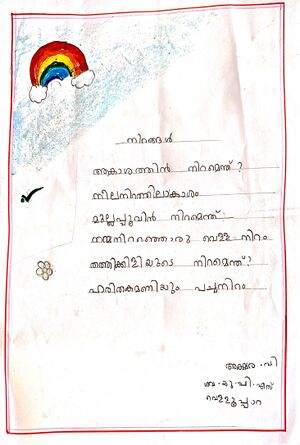 നിറങ്ങൾ
ആകാശത്തിൻ നിറമെന്ത് ?
നീലനിറത്തിലാകാശം
മുല്ലപ്പൂവിൻ നിറമെന്ത്
നന്മനിറഞ്ഞൊരു വെള്ള നിറം
തത്തിക്കിളിയുടെ നിറമെന്ത് ?
ഹരിതകമണിയും പച്ചനിറം
അക്ഷര . വി
യു . പി . എസ്